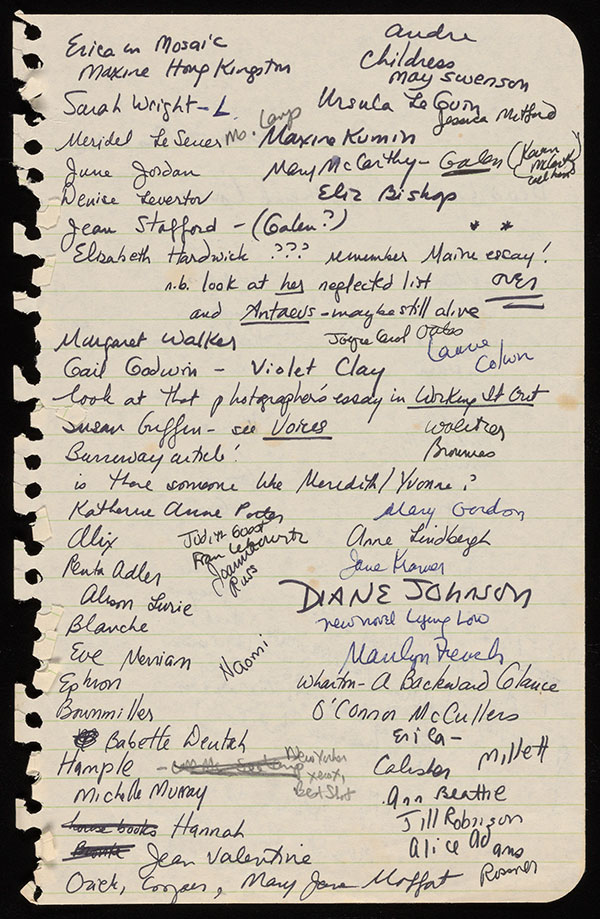 Erica in Mosaic
Maxine Hong Kingston
andre
Childress
May Swenson
Sarah Wright - L.
Ursula Le Guin
Jessica Mitford
Meridel Le Seuer Ms. Lamp
Maxine Kumin
June Jordan
Mary McCarthy - Galen (Kevin McCarthy
Denise Levertov
Eliz Bishop
Jean Stafford - (Galen?)
* *
Elizabeth Hardwick ??? remember Maine essay!
n.b. look at her neglected list
OVER
and Antaeus - maybe still alive
Margaret Walker
Joyce Carol Oates
Laurie Colwin
Gail Godwin - Violet Clay
look at that photographer's essay in Working It Out
Susan Griffin - see Voices
Wolitzer
Burroway article!
Brownies
is there someone like Meredith/Yvonne?
Katherine Anne Porter
Mary Gordon
Alix
Judith Guest
Fran Lebowitz
Joanna Russ
Anne Lindbergh
Renata Adler
Jane Kramer
Alison Lurie
DIANE JOHNSON
new novel Lying Low
Blanche
Eve Merriam
Naomi
Marilyn French
Ephron
Wharton - A Backward Glance
Brownmiller
O'Connor McCullers
Babette Deutsch
Erica -
Hample -
New Yorker
xerox,
Best Shot
Calisher
Millett
Michelle Murray
Ann Beattie
house books Hannah
Jill Robinson
Jean Valentine
Alice Adams
Ozick, Cooper, Mary Jane Moffat
Rossner